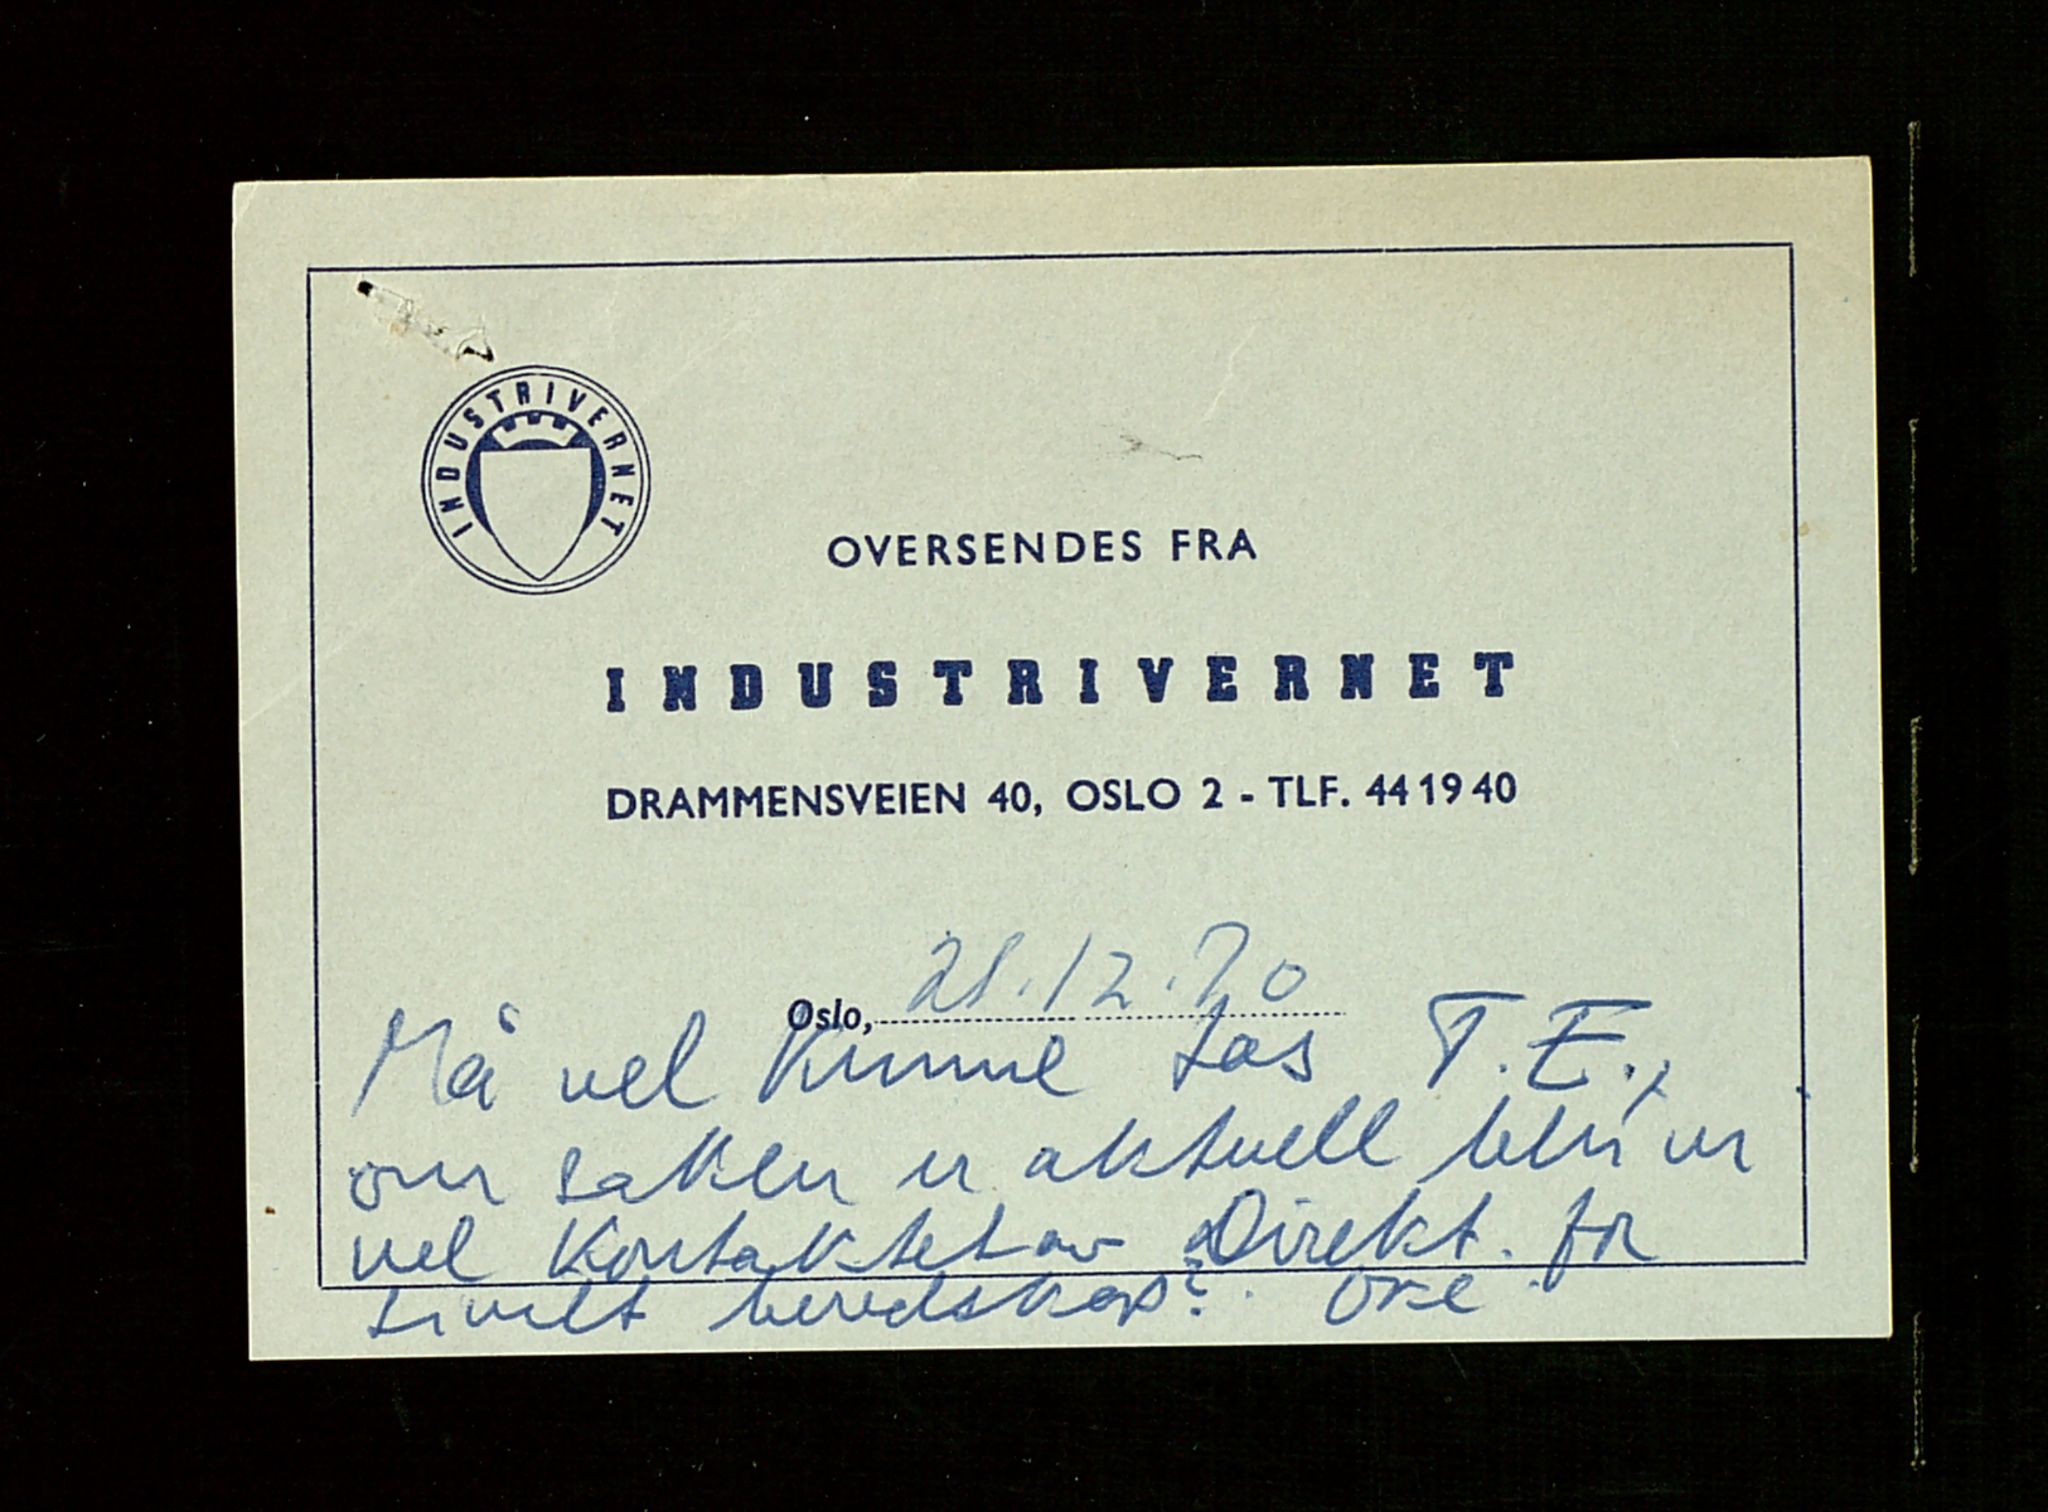 INDUSTRIVERNET
OVERSENDES FRA
INDUSTRIVERNET
DRAMMENSVEIEN 40, OSLO 2 - TLF. 44 19 40
Oslo, 21.12.70
Må vel kunne tas T.E.,
om saken er aktuell blir vi
vel kontaktet av Direkt. for
sivilt beredskap?